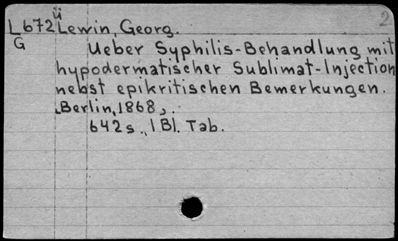 ü 2
L672 Lewin, Georg.
G Ueber Syphilis-Behandlung mit
hypodermatischer Sublimat-Injection
nebst epikritischen Bemerkungen.
Berlin, 1868,.
642s., 1 Bl. Tab.